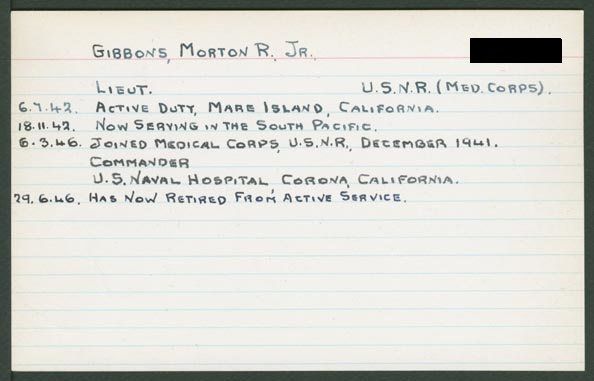 GIBBONS, MORTON R. JR.
LIEUT. U.S.N.R. (MED. CORPS).
6.7.42. ACTIVE DUTY, MARE ISLAND, CALIFORNIA.
18.11.42. NOW SERVING IN THE SOUTH PACIFIC.
6.3.46. JOINED MEDICAL CORPS, U.S.N.R., DECEMBER 1941.
COMMANDER
U.S. NAVAL HOSPITAL, CORONA, CALIFORNIA.
29.6.46. HAS NOW RETIRED FROM ACTIVE SERVICE.